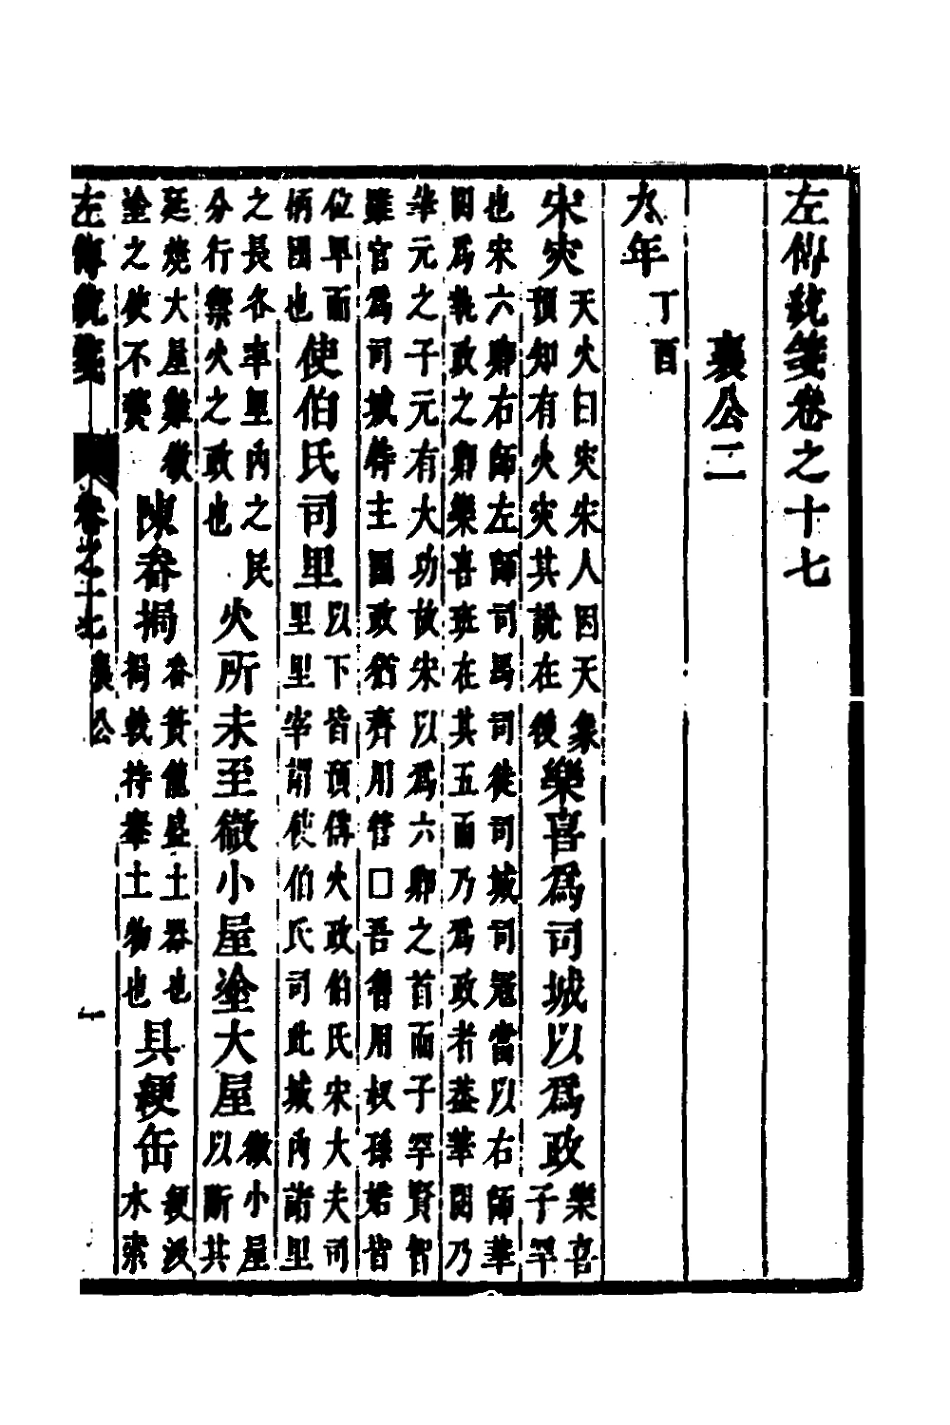 左傳統箋卷之十七
襄公二
九年丁酉
宋災天火曰災宋人因天象預知有火災其說在後樂喜爲司城以爲政樂喜子罕
也宋六卿右師左師司馬司徒司城司寇當以右師華閱爲執政之卿樂喜班在其五而乃爲政者蓋華閱乃
華元之子元有大功故宋以爲六卿之首而子罕賢智雖官爲司城特主國政猶齊用管口吾魯用叔孫婼皆
位卑而柄國也使伯氏司里以下皆預備火政伯氏宋大夫司里里宰謂使伯氏司此城內諸里
之長各率里內之民分行禦火之政也火所未至徹小屋塗大屋徹小屋以斷其
廷燒大屋難徹塗之使不爇陳畚挶畚蕢龍盛土器也挶軟持舉土物也具綆缶綆汲水索
左傳統箋 卷之十七 襄公 一